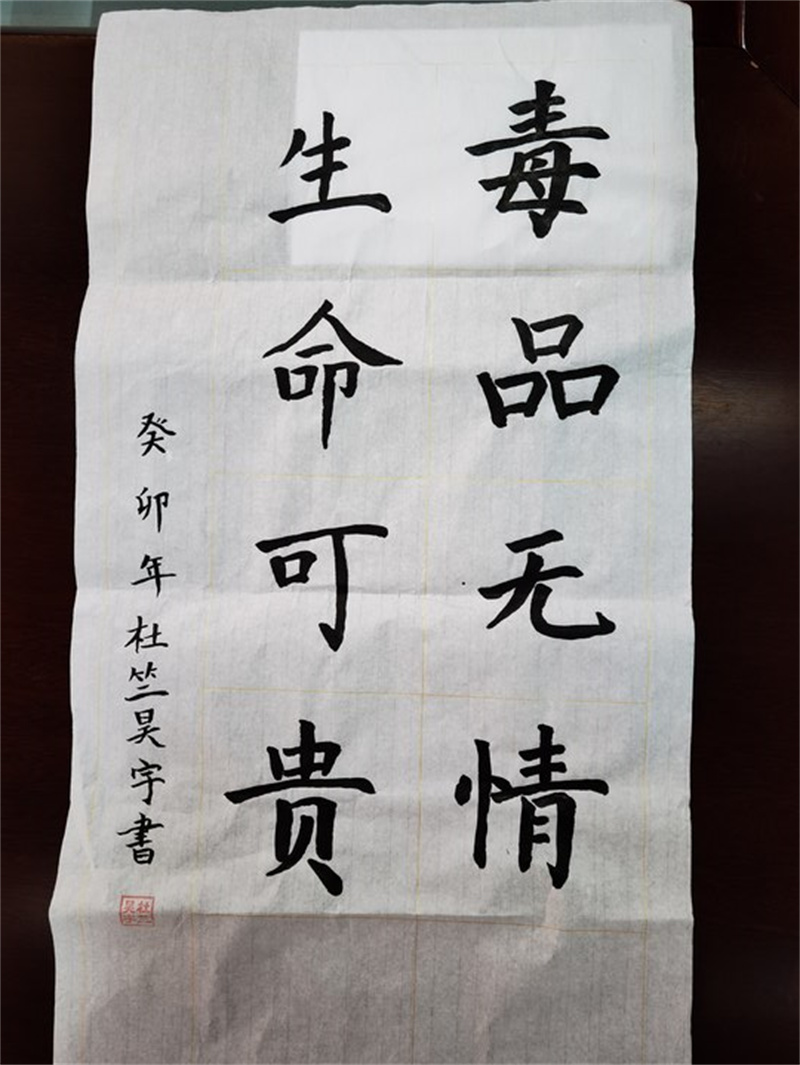 毒品无情
生命可贵
癸卯年杜竺昊宇書